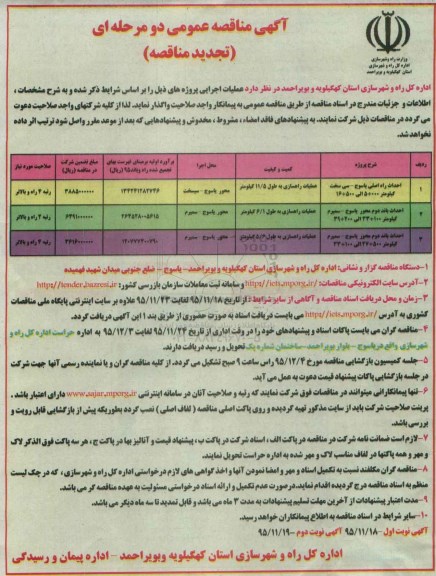 آگهی مناقصه عمومی دو مرحله ای
(تجدید مناقصه)
وزارت راه و شهرسازی
اداره کل راه و شهرسازی
استان کهگیلویه و بویراحمد
اداره کل راه و شهرسازی استان کهگیلویه و بویراحمد در نظر دارد عملیات اجرایی پروژه های ذیل را بر اساس شرایط ذکر شده و به شرح مشخصات ،
اطلاعات و جزئیات مندرج در اسناد مناقصه از طریق مناقصه عمومی به پیمانکار واجد صلاحیت واگذار نماید. لذا از کلیه شرکتهای واجد صلاحیت دعوت
می گردد در مناقصات ذیل شرکت نمایند. به پیشنهادهای فاقد امضاء ، مشروط ، مخدوش و پیشنهادهایی که بعد از موعد مقرر واصل شود ترتیب اثر داده
نخواهد شد.
ردیف شرح پروژه کمیت و کیفیت محل اجرا برآورد اولیه برمبنای فهرست بهای تجمیع شده راه وباند۹۵ مبلغ تضمین شرکت در مناقصه (ریال) صلاحیت مورد نیاز
۱ احداث راه اصلی یاسوج - سی سخت عملیات راهسازی به طول ۱۱/۵ کیلومتر محور یاسوج - سیسخت رتبه ۴ راه و بالاتر
۲ احداث باند دوم محور یاسوج - سمیرم عملیات راهسازی به طول ۶/۱ کیلومتر محور یاسوج - سمیرم رتبه ۴ راه و بالاتر
۳ احداث باند دوم محور یاسوج - سمیرم محور یاسوج - سمیرم رتبه ۴ راه و بالاتر
۱-دستگاه مناقصه گزار و نشانی: اداره کل راه و شهرسازی استان کهگیلویه و بویراحمد- یاسوج - ضلع جنوبی میدان شهید فهمیده
۲-آدرس سایت الکترونیکی مناقصات: http://iets.mporg.ir/ و سامانه ثبت معاملات سازمان بازرسی کشور: http://tender.bazresi.ir
۳-زمان و محل دریافت اسناد مناقصه و آگاهی از سایر شرایط : از تاریخ ۹۵/۱۱/۱۸ لغایت ۹۵/۱۱/۲۳ علاوه بر سایت اینترنتی پایگاه ملی مناقصات
کشوری به آدرس http://iets.mporg.ir/ می بایست دریافت اسناد به صورت حضوری از طریق بند ۱ این آگهی دریافت گردد.
۴-مناقصه گران می بایست پاکات اسناد و پیشنهادهای خود را در وقت اداری از تاریخ ۹۵/۱۱/۲۴ لغایت ۹۵/۱۲/۳ به اداره حراست اداره کل راه و
شهرسازی واقع در یاسوج - بلوار بویراحمد-ساختمان شماره یک تحویل و رسید دریافت دارند.
۵- جلسه کمیسیون بازگشایی مناقصه مورخ ۹۵/۱۲/۴ راس ساعت ۹ صبح تشکیل می گردد. از کلیه مناقصه گران و یا نماینده رسمی آنها جهت شرکت
در جلسه بازگشایی پاکات پیشنهاد قیمت دعوت به عمل می آید.
۶- تنها پیمانکارانی میتوانند در مناقصات فوق شرکت نمایند که رتبه و صلاحیت آنان در سامانه اینترنتی www.sajar.mporg.ir دارای اعتبار باشد .
پرینت صلاحیت شرکت باید از سایت مذکور تهیه گردیده و روی پاکت اصلی مناقصه ( لفاف اصلی ) نصب گردد بطوریکه پیش از بازگشایی قابل رویت و
بررسی باشد.
۷- لازم است ضمانت نامه شرکت در مناقصه در پاکت الف ، اسناد شرکت در پاکت ب ، پیشنهاد قیمت و آنالیز بها در پاکت ج ، هر سه پاکت فوق الذکر لاک
و مهر و همه پاکتها در لفاف مناسب لاک و مهر شده به اداره حراست تحویل نمایند.
۸- مناقصه گران مکلفند نسبت به تکمیل اسناد و مهر و امضا نمودن آنها و اخذ گواهی های لازم درخواستی اداره کل راه و شهرسازی، که در چک لیست
منظم به اسناد مناقصه درج گردیده اقدام نماید. درصورت عدم تکمیل و ارائه اسناد درخواستی مسئولیت به عهده مناقصه گر می باشد.
۹-مدت اعتبار پیشنهادات از آخرین مهلت تسلیم پیشنهادات به مدت ۳ ماه می باشد و قابل تمدید تا سه ماه دیگر می باشد.
۱۰-سایر شرایط در اسناد مناقصه به اطلاع پیمانکاران خواهد رسید.
آگهی نوبت اول -۹۵/۱۱/۱۸ آگهی نوبت دوم -۹۵/۱۱/۱۹
اداره کل راه و شهرسازی استان کهگیلویه وبویراحمد - اداره پیمان و رسیدگی